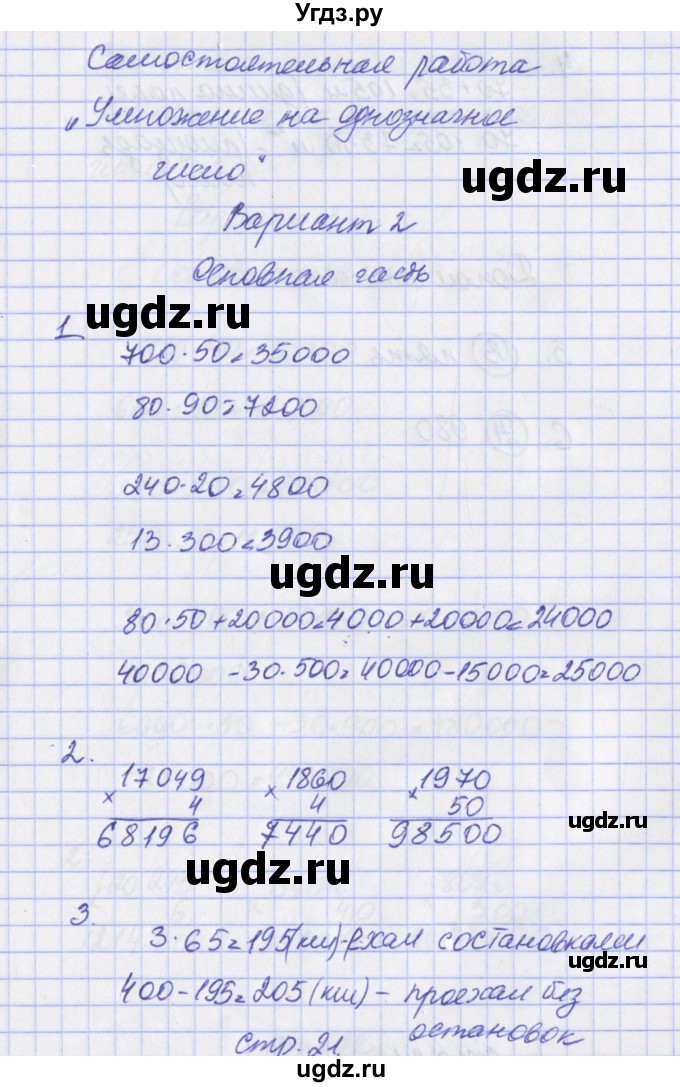 Угдз.ру
Самостоятельная работа
„Умножение на однозначное
число"
ugdz.ru
Вариант 2
Основная часть
ugdz.ru
1
700·50=35000
80·90=7200
240·20=4800
13·300=3900
ugdz.ru
80·50+20000=4000+20000=24000
40000 -30·500=40000-15000=25000
2.
×17049 ×1860 ×1970
4 4 50
68196 7440 98500
ugdz.ru
ugdz.ru
3.
3·65=195(км)-ехал с остановками
400-195=205(км)- проехал без
остановок
стр. 21.
ugdz.ru
ugdz.ru